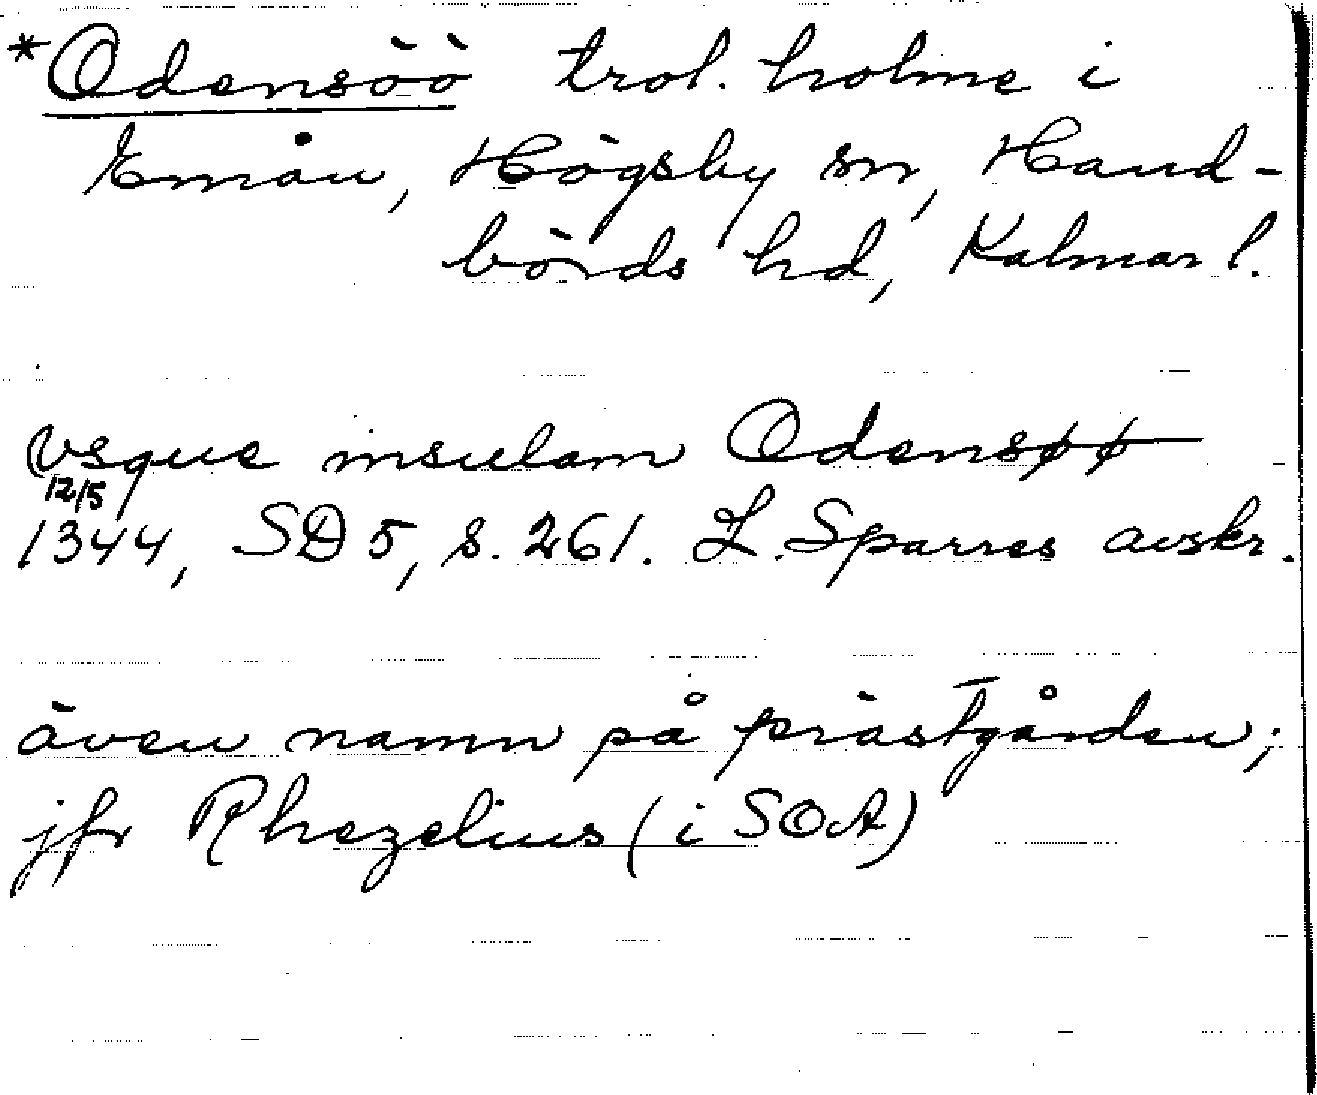 *Odensöö trol. holme i
Emån, Högsby sn, Hand-
börds hd, Kalmar l.
vsque insulam Odensøø
12/5
1344, SD 5, s. 261. L. Sparres avskr.
även namn på prästgården;
jfr Rhezelius (i SOA)